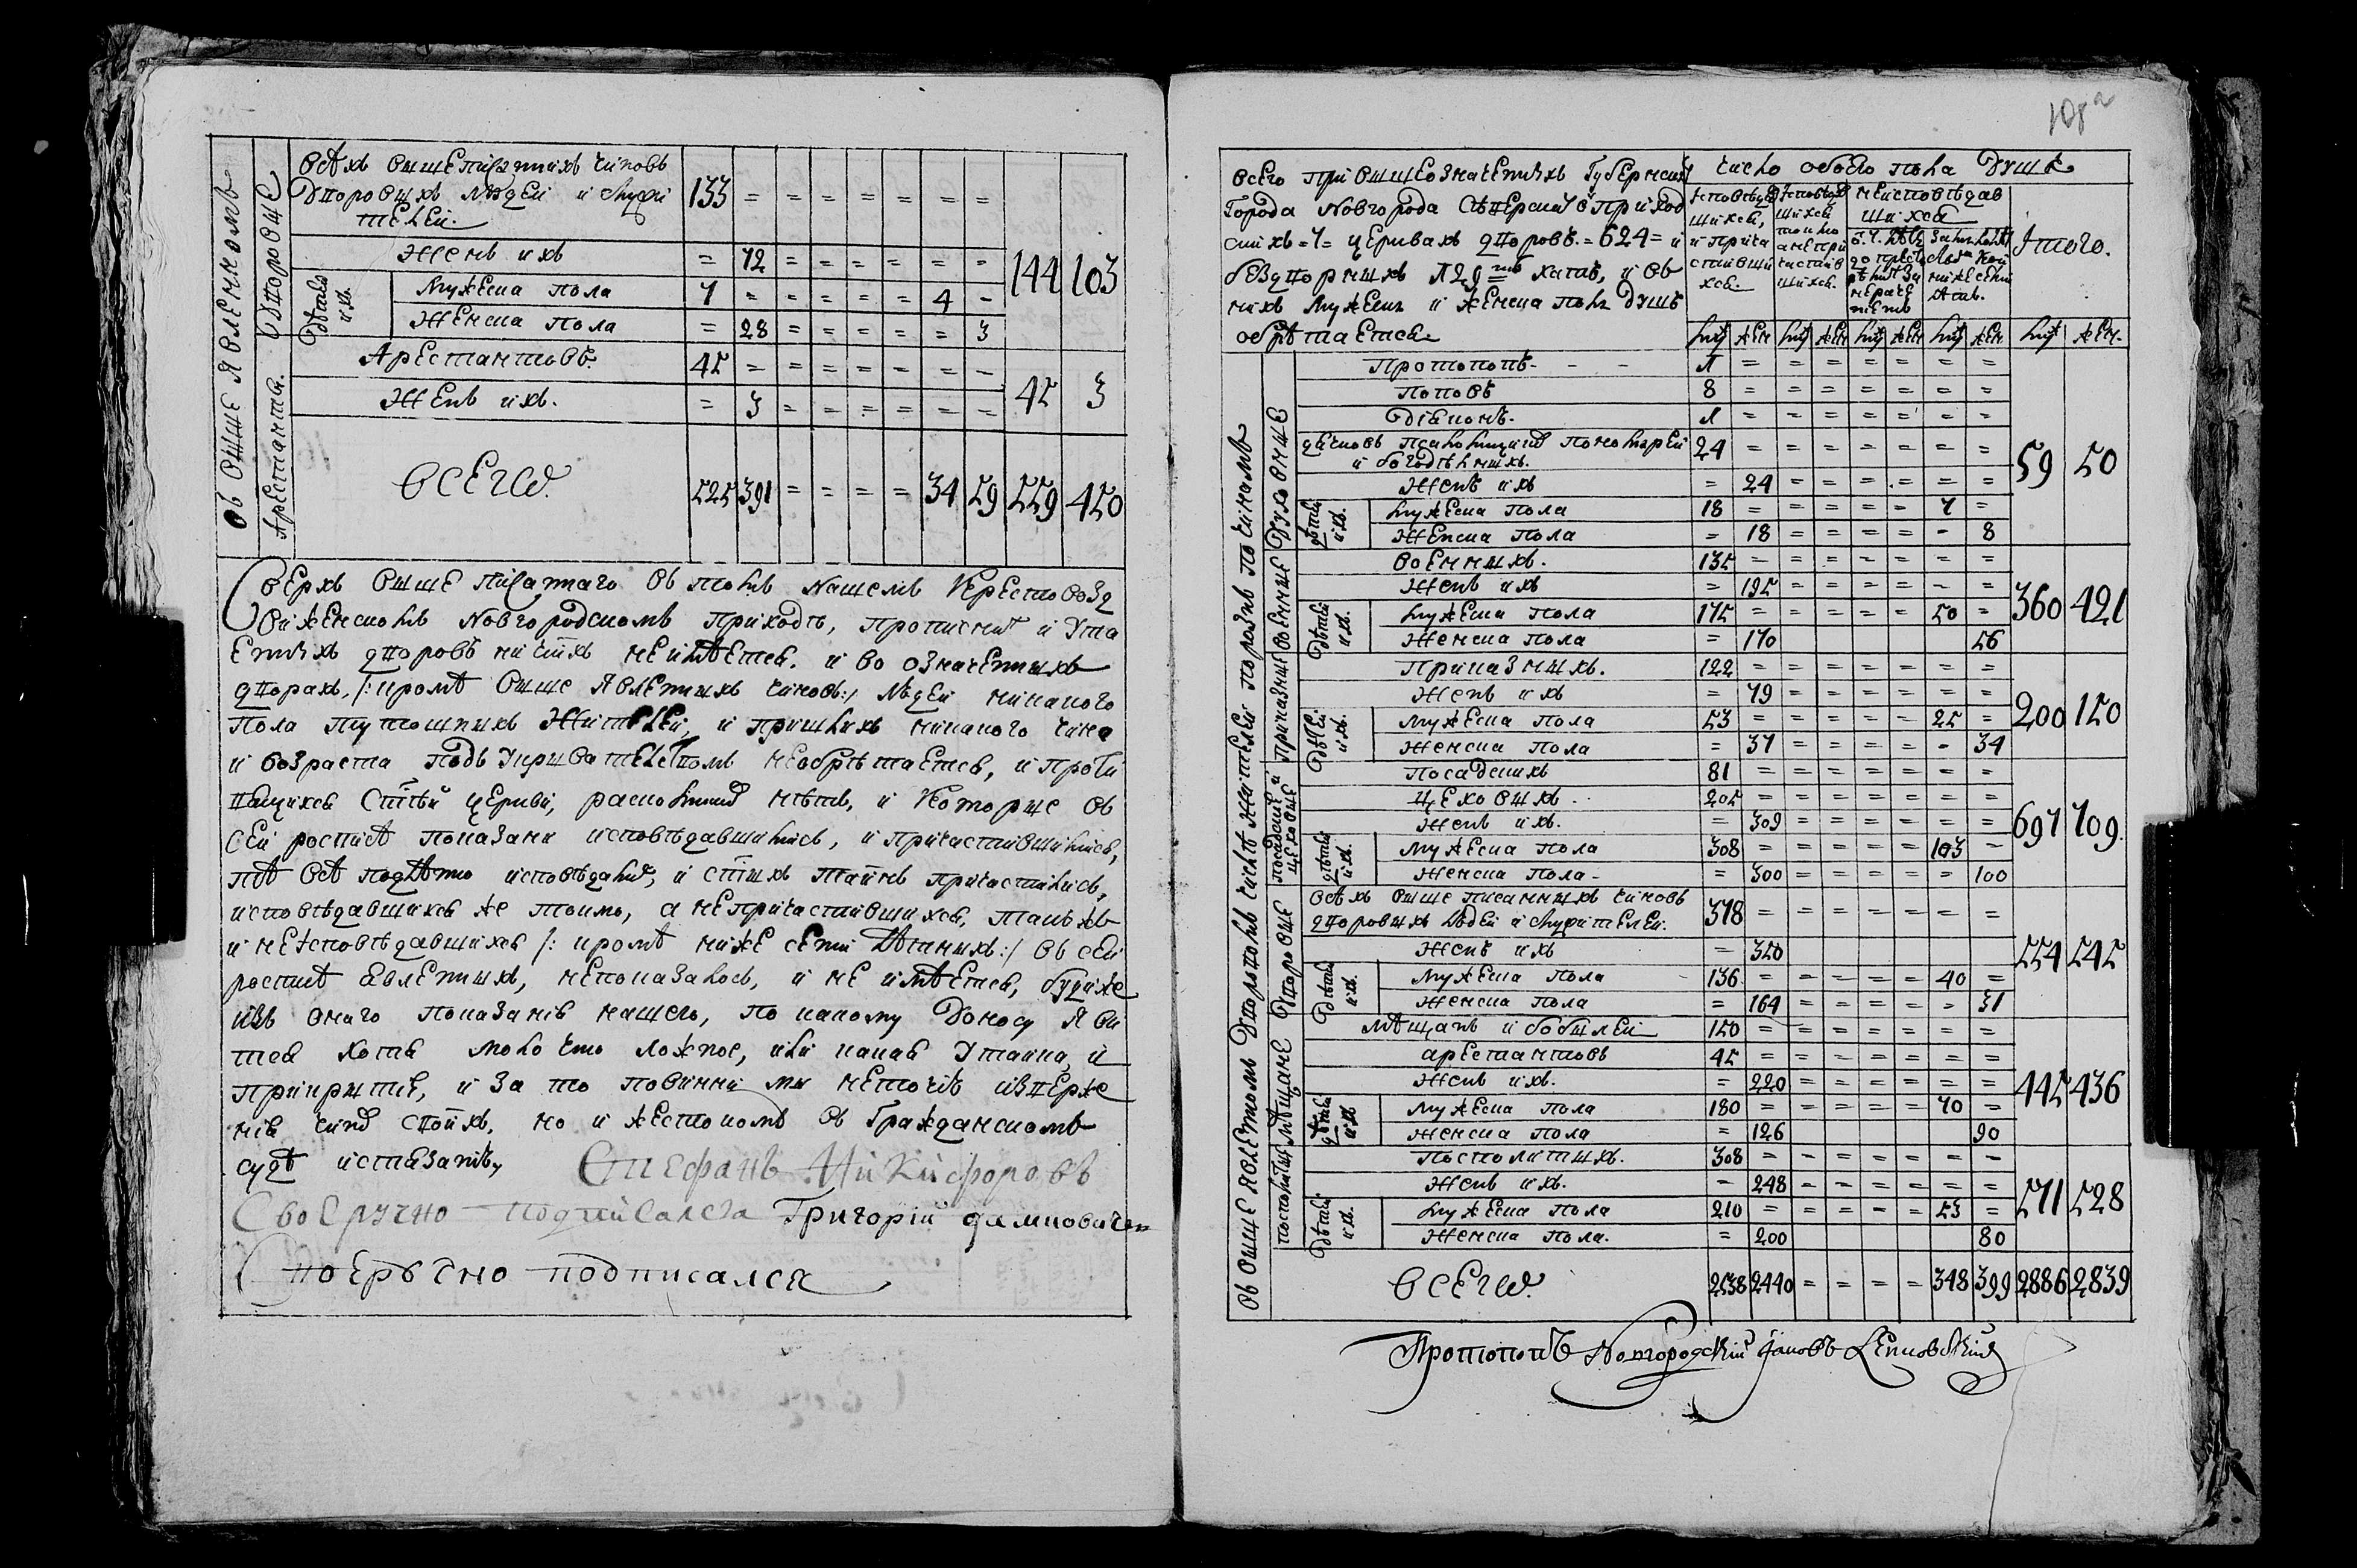 Въ Выше Явленномъ
Дворовые
Арестанты.
Всѣхъ Вышеписанныхъ чиновъ
Дворовыхъ Людей и служи
телей. 133 = = = = = = =
Женъ ихъ = 72 = = = = = =
Дѣтей ихъ.
Мужеска пола 7 = = = = = 4 =
Женска пола = 28 = = = = = 3
144 103
Арестантовъ. 45 = = = = = = =
Женъ ихъ. = 3 = = = = = =
45 3
Всегѡ. 525 391 = = = = 34 59 559 450
Сверхъ Выше писаннаго въ томъ нашемъ Крестовозд
виженскомъ Новгородскомъ приходѣ, прописныхъ и ута
енныхъ дворовъ ничіихъ неимѣется. и во означенныхъ
дворахъ, /: кромѣ Выше Явленныхъ чиновъ :/ Людей никакого
пола тутошныхъ Жителей, и пришлыхъ никакого чина
и возраста подъ укрывателствомъ необрѣтается, и проти
вящихся стѣй церкви, расколниковъ нѣтъ, и которые въ
сей росписѣ показани исповѣдавшимись, и причастившимись,
тѣ всѣ подлѣнно исповѣдались, и стыхъ таинъ причастились,
исповѣдавшихся же токмо, а непричастившихся, такъ жъ
и неисповѣдавшихся /: кромѣ ниже семи лѣтныхъ :/ въ сей
росписѣ явленныхъ, непоказалось, и не имѣется, буди же
изъ онаго показанія нашего, по какому доносу яви
тся хотя мало что ложное, или какая утайка, и
прикрытіе, и за то повинни мы неточію изверже
нія чиновъ своихъ, но и жестокомъ въ Гражданскомъ
судѣ истязаніи,
Стефанъ Никифоровъ
Своеручно подписался Григорій
Своеручно подписался
Всего при вышеозначенныхъ Губернскаго
Города Новгорода Сѣверскаго приход
скихъ =7= церквахъ дворовъ. =624= и
бездворныхъ 129 хатъ, и въ
нихъ мужеска и женска полу душъ
обрѣтается.
число обоего пола Душъ
Исповѣдав
шихся,
и прича
стивши
хся.
Исповѣдав
шихся
токмо
а непри
частив
шихся.
неисповѣдав
шихся
Итого.
муж жен муж жен муж жен муж жен муж жен.
Въ Выше Явленномъ
Духовные
Протопопъ. 1 = = = = = = =
Поповъ 8 = = = = = = =
Діаконъ. 1 = = = = = = =
дячковъ пономарей
и богодѣлныхъ. 24 = = = = = = =
Женъ ихъ = 24 = = = = = =
Дѣтей ихъ.
Мужеска пола 18 = = = = = 7 =
Женска пола = 18 = = = = = 8
59 50
Военные
Военныхъ. 135 = = = = = = =
Женъ ихъ = 195 = = = = = =
Дѣтей ихъ.
Мужеска пола 175 = = = = = 50 =
Женска пола = 170 56
360 421
Приказные
Приказныхъ. 122 = = = = = = =
Женъ ихъ = 79 = = = = = =
Дѣтей ихъ.
Мужеска пола 53 = = = = = 25 =
Женска пола = 37 = = = = = 34
200 150
Посадские и цеховые
Посадскихъ 81 = = = = = = =
Цеховыхъ. 205 = = = = = = =
Женъ ихъ. = 309 = = = = = =
Дѣтей ихъ.
Мужеска пола 308 = = = = = 103 =
Женска пола = 300 = = = = = 100
697 709.
Дворовые
Всѣхъ выше писанныхъ чиновъ
дворовыхъ людей и служителей. 378 = = = = = = =
Женъ ихъ = 350
Дѣтей ихъ.
Мужеска пола 136 = = = = = 40 =
Женска пола = 164 = = = = = 31
554 545
Мѣщане
Мѣщанъ и бобылей 150 = = = = = = =
арестантовъ 45 = = = = = = =
Женъ ихъ. = 220 = = = = = =
Дѣтей ихъ
Мужеска пола 180 = = = = = 70 =
Женска пола = 126 90
445 436
посполитыя
Посполитыхъ. 308 = = = = = = =
Женъ ихъ. = 248 = = = = = =
Дѣтей ихъ.
Мужеска пола 210 = = = = = 53 =
Женска пола. = 200 80
571 528
Всегѡ. 2538 2440 = = = = 348 399 2886 2839
Протопопъ Новгородскій Іаковъ